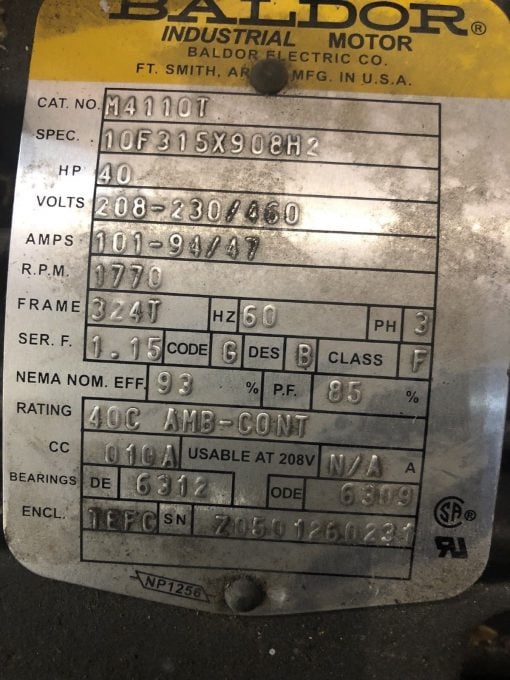 BALDOR®
INDUSTRIAL MOTOR
BALDOR ELECTRIC CO.
FT. SMITH, AR MFG. IN U.S.A.
CAT. NO. M4110T
SPEC. 10F315X908H2
HP 40
VOLTS 208-230/460
AMPS 101-94/47
R.P.M. 1770
FRAME 324T HZ 60 PH 3
SER. F. 1.15 CODE G DES B CLASS F
NEMA NOM. EFF. 93 % P.F. 85 %
RATING 40C AMB-CONT
CC 010A USABLE AT 208V N/A A
BEARINGS DE 6312 ODE 6309
ENCL. TEFC SN Z0501260231
SA ®
NP1256